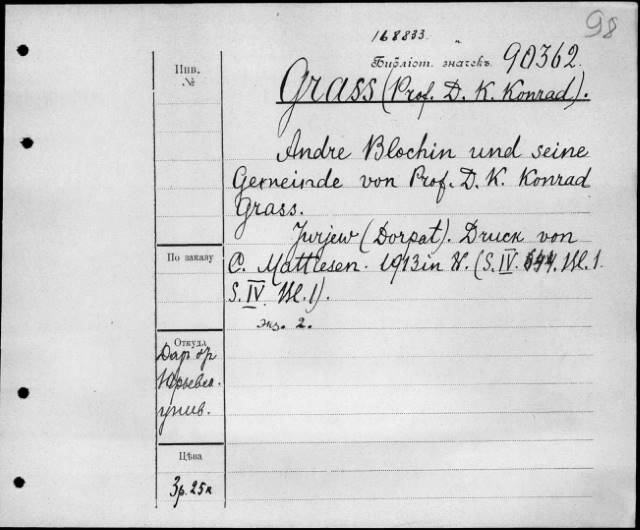 98
168833.
Библіот. значекъ 90362.
Инв.
№
Grass (Prof. D. K. Konrad).
Andre Blochin und seine
Gemeinde von Prof. D. K. Konrad
Grass.
Jurjew (Dorpat). Druck von
C. Mattiesen. 1913 in 8. (S. IV. 644. Bl. 1.
S. IV. Bl. 1).
экз. 2.
По заказу
Откуда
Дар от
Юрьевск.
унив.
Цѣна
3р. 25к